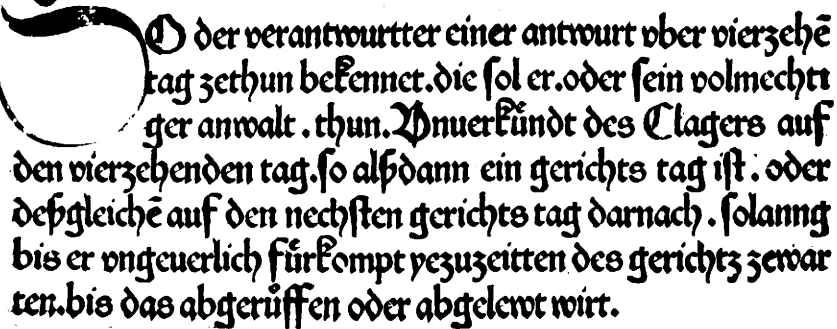 SO der verantwurtter einer antwurt vber vierzehē
tag zethun bekennet.die ſol er.oder ſein volmechti
ger anwalt . thun. Vnuerkündt des Clagers auf
den vierzehenden tag.ſo alßdann ein gerichts tag iſt . oder
deßgleichē auf den nechſten gerichts tag darnach . ſolanng
bis er vngeuerlich fürkompt yezuzeitten des gerichtz zewar
ten.bis das abgerüffen oder abgelewt wirt.